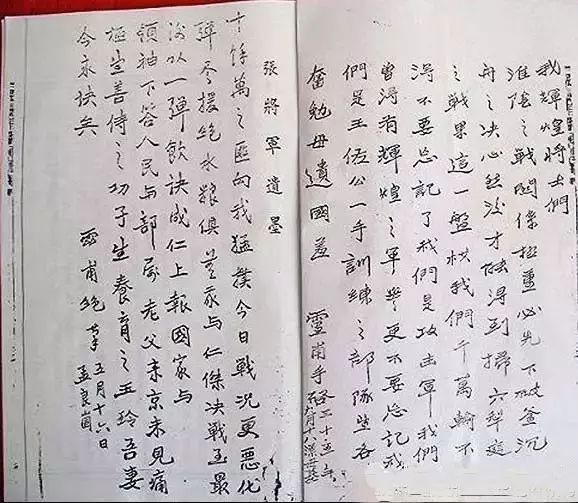 我輝煌將士們
淮陰之戰關係極重必先下破釜沉
舟之決心然後才能得到掃穴犁庭
之戰果這一盤棋我們千萬輸不
得不要忘記了我們是攻击軍我們
曾得有輝煌之軍譽更不要忘記我
們是王佐公一手訓練之部隊望各
奮勉毋遺國羞
靈甫手啓 三十五年
九月十八深夜
張將軍遺墨
十餘萬之匪向我猛撲今日戰況更惡化
彈盡援絕水糧俱無我与仁傑決戰至最
後以一彈飲訣成仁上報國家与
領袖下答人民与部屬老父来京未見痛
極望善待之幼子望養育之玉玲吾妻
今永訣矣
靈甫絕筆 五月十六日
孟良崮